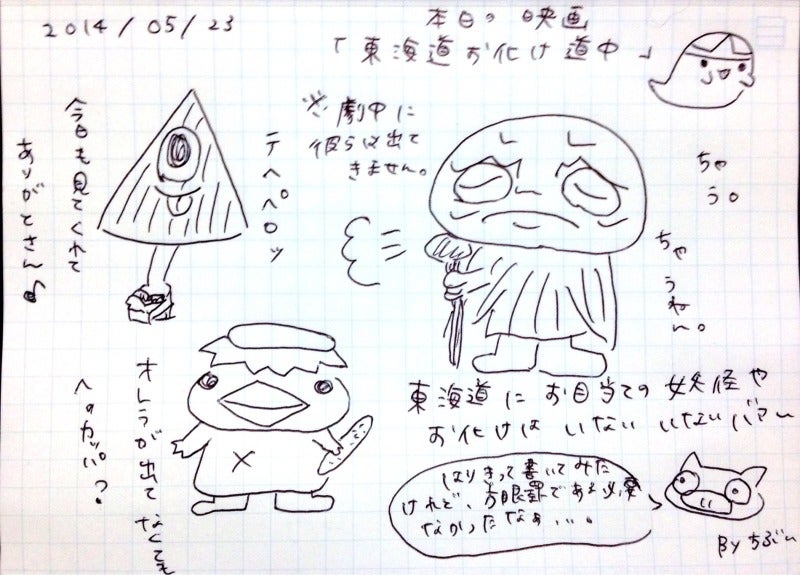 2014/05/23
本日の映画
「東海道お化け道中」
※劇中に
彼らは出て
きません。
今日も見てくれて
ありがとさん♪
テヘペロッ
ちゃ
う。
ちゃ
うねん。
オレラが出てなくても
への カッパ。?
東海道にお目当ての妖怪や
お化けはいないいないバアー
はりきって書いてみた
けれど、方眼罫である必要
なかったなぁ...。
By ちぶー